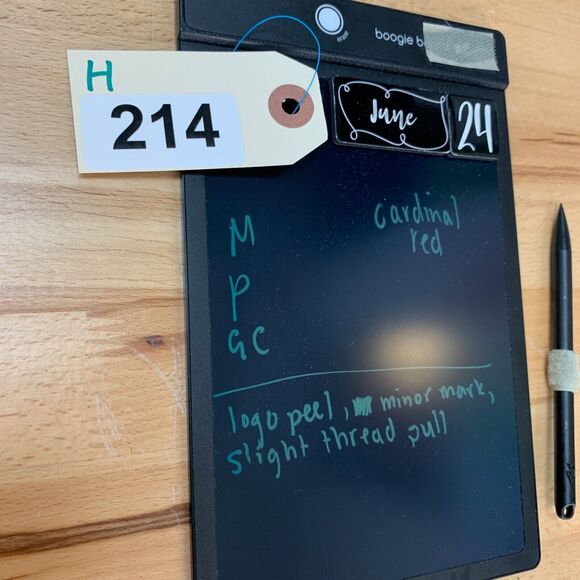 erase
boogie b
H
214
June
24
M
cardinal
red
P
GC
logo peel, minor mark,
slight thread pull